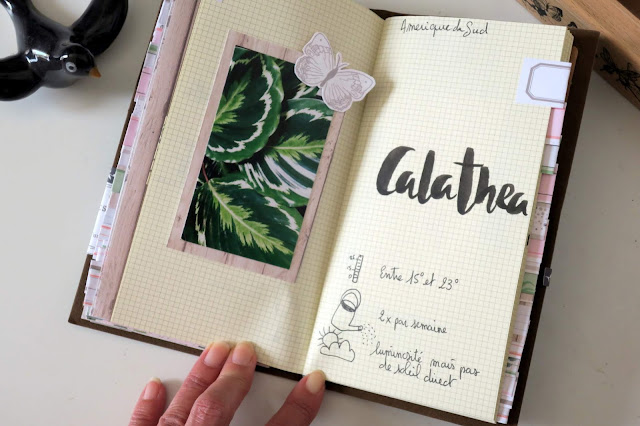 Amérique du Sud
Calathea
Entre 15° et 23°
2x par semaine
luminosité mais pas
de soleil direct